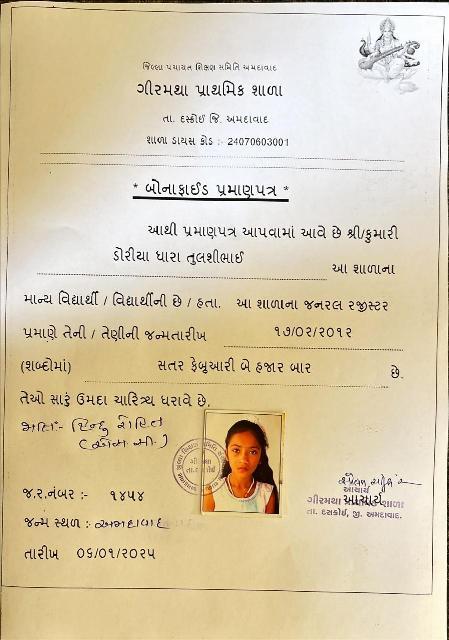 જિલ્લા પંચાયત શિક્ષણ સમિતિ અમદાવાદ
ગીરમથા પ્રાથમિક શાળા
તા. દસ્ક્રોઈ જિ. અમદાવાદ
શાળા ડાયસ કોડ :- 24070603001
* બોનાફાઈડ પ્રમાણપત્ર *
આથી પ્રમાણપત્ર આપવામાં આવે છે શ્રી/કુમારી
ડોરીયા ધારા તુલશીભાઈ
આ શાળાના
માન્ય વિદ્યાર્થી / વિદ્યાર્થીની છે / હતા. આ શાળાના જનરલ રજીસ્ટર
પ્રમાણે તેની / તેણીની જન્મતારીખ ૧૭/૦૨/૨૦૧૨
(શબ્દોમાં) સતર ફેબ્રુઆરી બે હજાર બાર છે.
તેઓ સારું ઉમદા ચારિત્ર્ય ધરાવે છે.
જાતિ:- હિન્દુ
જ.ર.નંબર :- ૧૪૫૪
જન્મ સ્થળ : અમદાવાદ
તારીખ ૦૬/૦૧/૨૦૨૫
આચાર્ય
આચાર્ય
ગીરમથા પ્રાથમિક શાળા
તા. દસક્રોઈ, જી. અમદાવાદ.